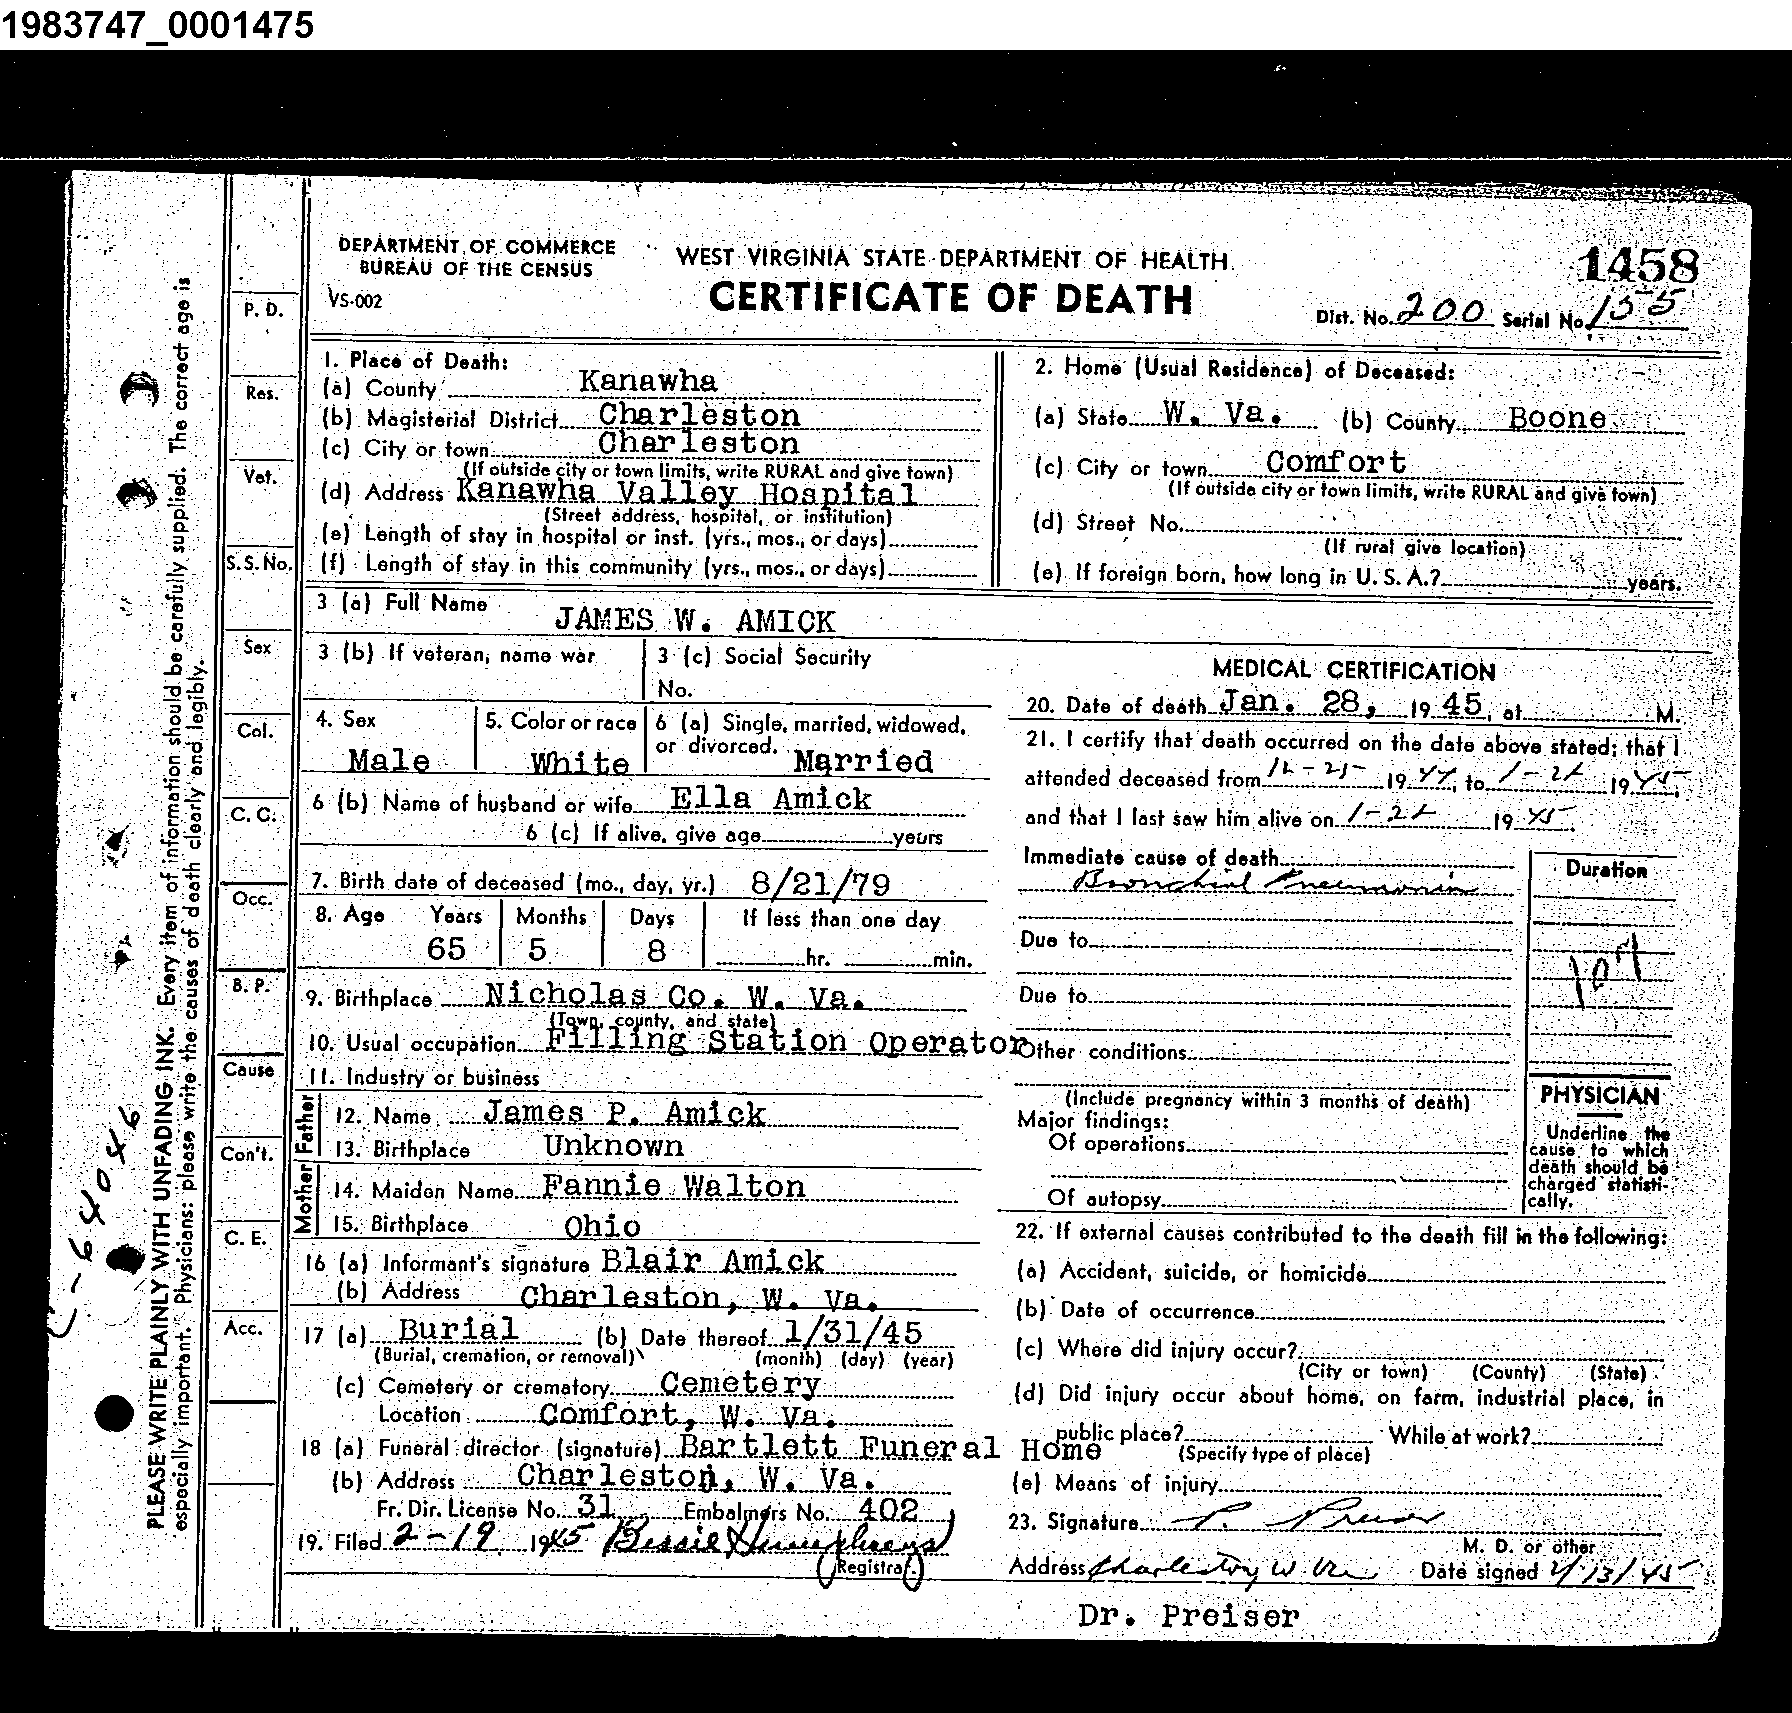 1983747_0001475
DEPARTMENT OF COMMERCE
BUREAU OF THE CENSUS
VS-002
WEST VIRGINIA STATE DEPARTMENT OF HEALTH
CERTIFICATE OF DEATH
1458
Dist. No. 200 Serial No. 155
1. Place of Death:
(a) County Kanawha
(b) Magisterial District Charleston
(c) City or town Charleston
(If outside city or town limits, write RURAL and give town)
(d) Address Kanawha Valley Hospital
(Street address, hospital, or institution)
(e) Length of stay in hospital or inst. (yrs., mos., or days)
(f) Length of stay in this community (yrs., mos., or days)
2. Home (Usual Residence) of Deceased:
(a) State W. Va. (b) County Boone
(c) City or town Comfort
(If outside city or town limits, write RURAL and give town)
(d) Street No.
(If rural give location)
(e) If foreign born, how long in U. S. A.? years.
3 (a) Full Name JAMES W. AMICK
3 (b) If veteran, name war
3 (c) Social Security
No.
4. Sex Male
5. Color or race White
6 (a) Single, married, widowed,
or divorced. Married
6 (b) Name of husband or wife Ella Amick
6 (c) If alive, give age years
7. Birth date of deceased (mo., day, yr.) 8/21/79
8. Age Years Months Days If less than one day
65 5 8 hr. min.
9. Birthplace Nicholas Co. W. Va.
(Town, county, and state)
10. Usual occupation Filling Station Operator
11. Industry or business
Father
12. Name James P. Amick
13. Birthplace Unknown
Mother
14. Maiden Name Fannie Walton
15. Birthplace Ohio
16 (a) Informant's signature Blair Amick
(b) Address Charleston, W. Va.
17 (a) Burial (b) Date thereof 1/31/45
(Burial, cremation, or removal) (month) (day) (year)
(c) Cemetery or crematory Cemetery
Location Comfort, W. Va.
18 (a) Funeral director (signature) Bartlett Funeral Home
(b) Address Charleston, W. Va.
Fr. Dir. License No. 31 Embalmers No. 402
19. Filed 2-19 1945 Bessie Humphreys
(Registrar)
MEDICAL CERTIFICATION
20. Date of death Jan. 28, 1945, at M.
21. I certify that death occurred on the date above stated; that I
attended deceased from 12-25- 1944, to 1-2 1945,
and that I last saw him alive on 1-2 1945.
Immediate cause of death
Bronchial Pneumonia
Duration
Due to
Due to
107
Other conditions
(Include pregnancy within 3 months of death)
Major findings:
Of operations
Of autopsy
PHYSICIAN
Underline the
cause to which
death should be
charged statisti-
cally.
22. If external causes contributed to the death fill in the following:
(a) Accident, suicide, or homicide
(b) Date of occurrence
(c) Where did injury occur?
(City or town) (County) (State)
(d) Did injury occur about home, on farm, industrial place, in
public place? While at work?
(Specify type of place)
(e) Means of injury
23. Signature P. Preiser
M. D. or other
Address Charleston W. Va Date signed 2/13/45
Dr. Preiser
P. D.
Res.
Vet.
S. S. No.
Sex
Col.
C. C.
Occ.
B. P.
Cause
Con't.
C. E.
Acc.
PLEASE WRITE PLAINLY WITH UNFADING INK. Every item of information should be carefully supplied. The correct age is
especially important. Physicians: please write the causes of death clearly and legibly.
C-64046